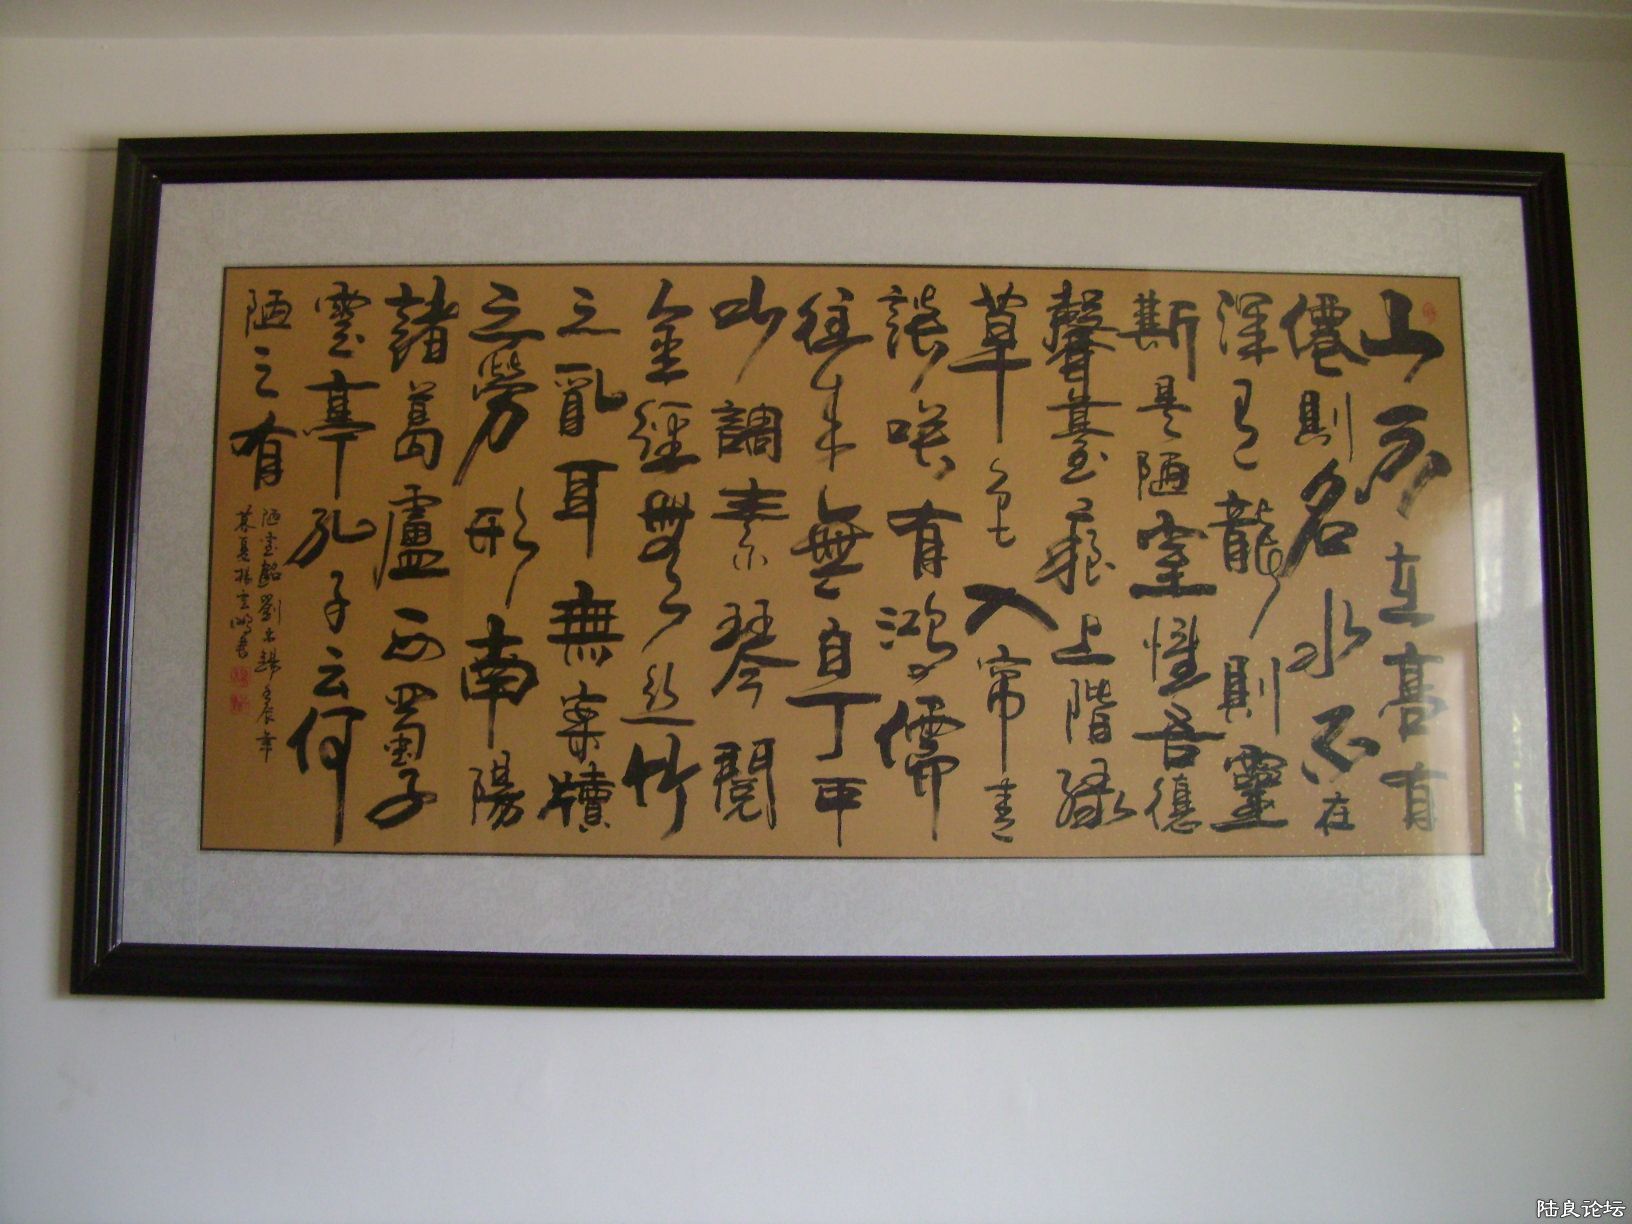 山不在高有
僊則名水不在
深有龍則靈
斯是陋室惟吾德
馨薹痕上階緑
草色入帘青
談咲有鴻儒
往来無白丁可
以調素琴閲
金經無絲竹
之亂耳無案牘
之勞形南陽
諸葛廬西蜀子
雲亭孔子云何
陋之有
陋室銘劉禹錫壬辰年
暮夏楊雲鴻書
陆良论坛